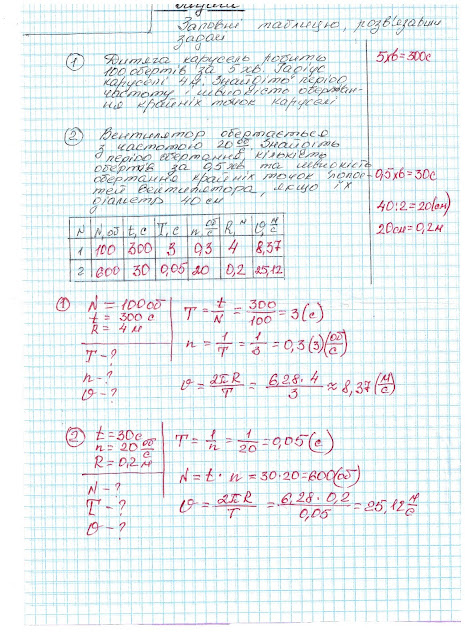 Заповни таблицю, розв'язавши
задачі
① Дитяча карусель робить
100 обертів за 5 хв. Радіус
каруселі 4 м. Знайдіть період
частоту і швидкість обертан-
ня крайніх точок каруселі
5хв = 300с
② Вентилятор обертається
з частотою 20 об/с. Знайдіть
період обертання, кількість
обертів за 0,5хв та швидкість
обертання крайніх точок лопос-
тей вентилятора, якщо їх
діаметр 40 см
0,5хв = 30с
40:2=20(см)
20см=0,2м
N N,об t,c T,c n об/с R,м υ, м/с
1 100 300 3 0,3 4 8,37
2 600 30 0,05 20 0,2 25,12
① N = 100об
t = 300 с
R = 4 м
T - ?
n - ?
υ - ?
T = t/N = 300/100 = 3 (с)
n = 1/T = 1/3 = 0,3(3)(об/с)
υ = 2πR/T = 6,28·4/3 ≈ 8,37(м/с)
② t = 30с
n = 20 об/с
R = 0,2м
N - ?
T - ?
υ - ?
T = 1/n = 1/20 = 0,05 (с)
N = t · n = 30·20=600(об)
υ = 2πR/T = 6,28·0,2/0,05 = 25,12 м/с